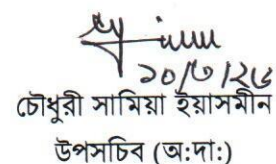 ১০/৩/২৬
চৌধুরী সামিয়া ইয়াসমীন
উপসচিব (অ:দা:)